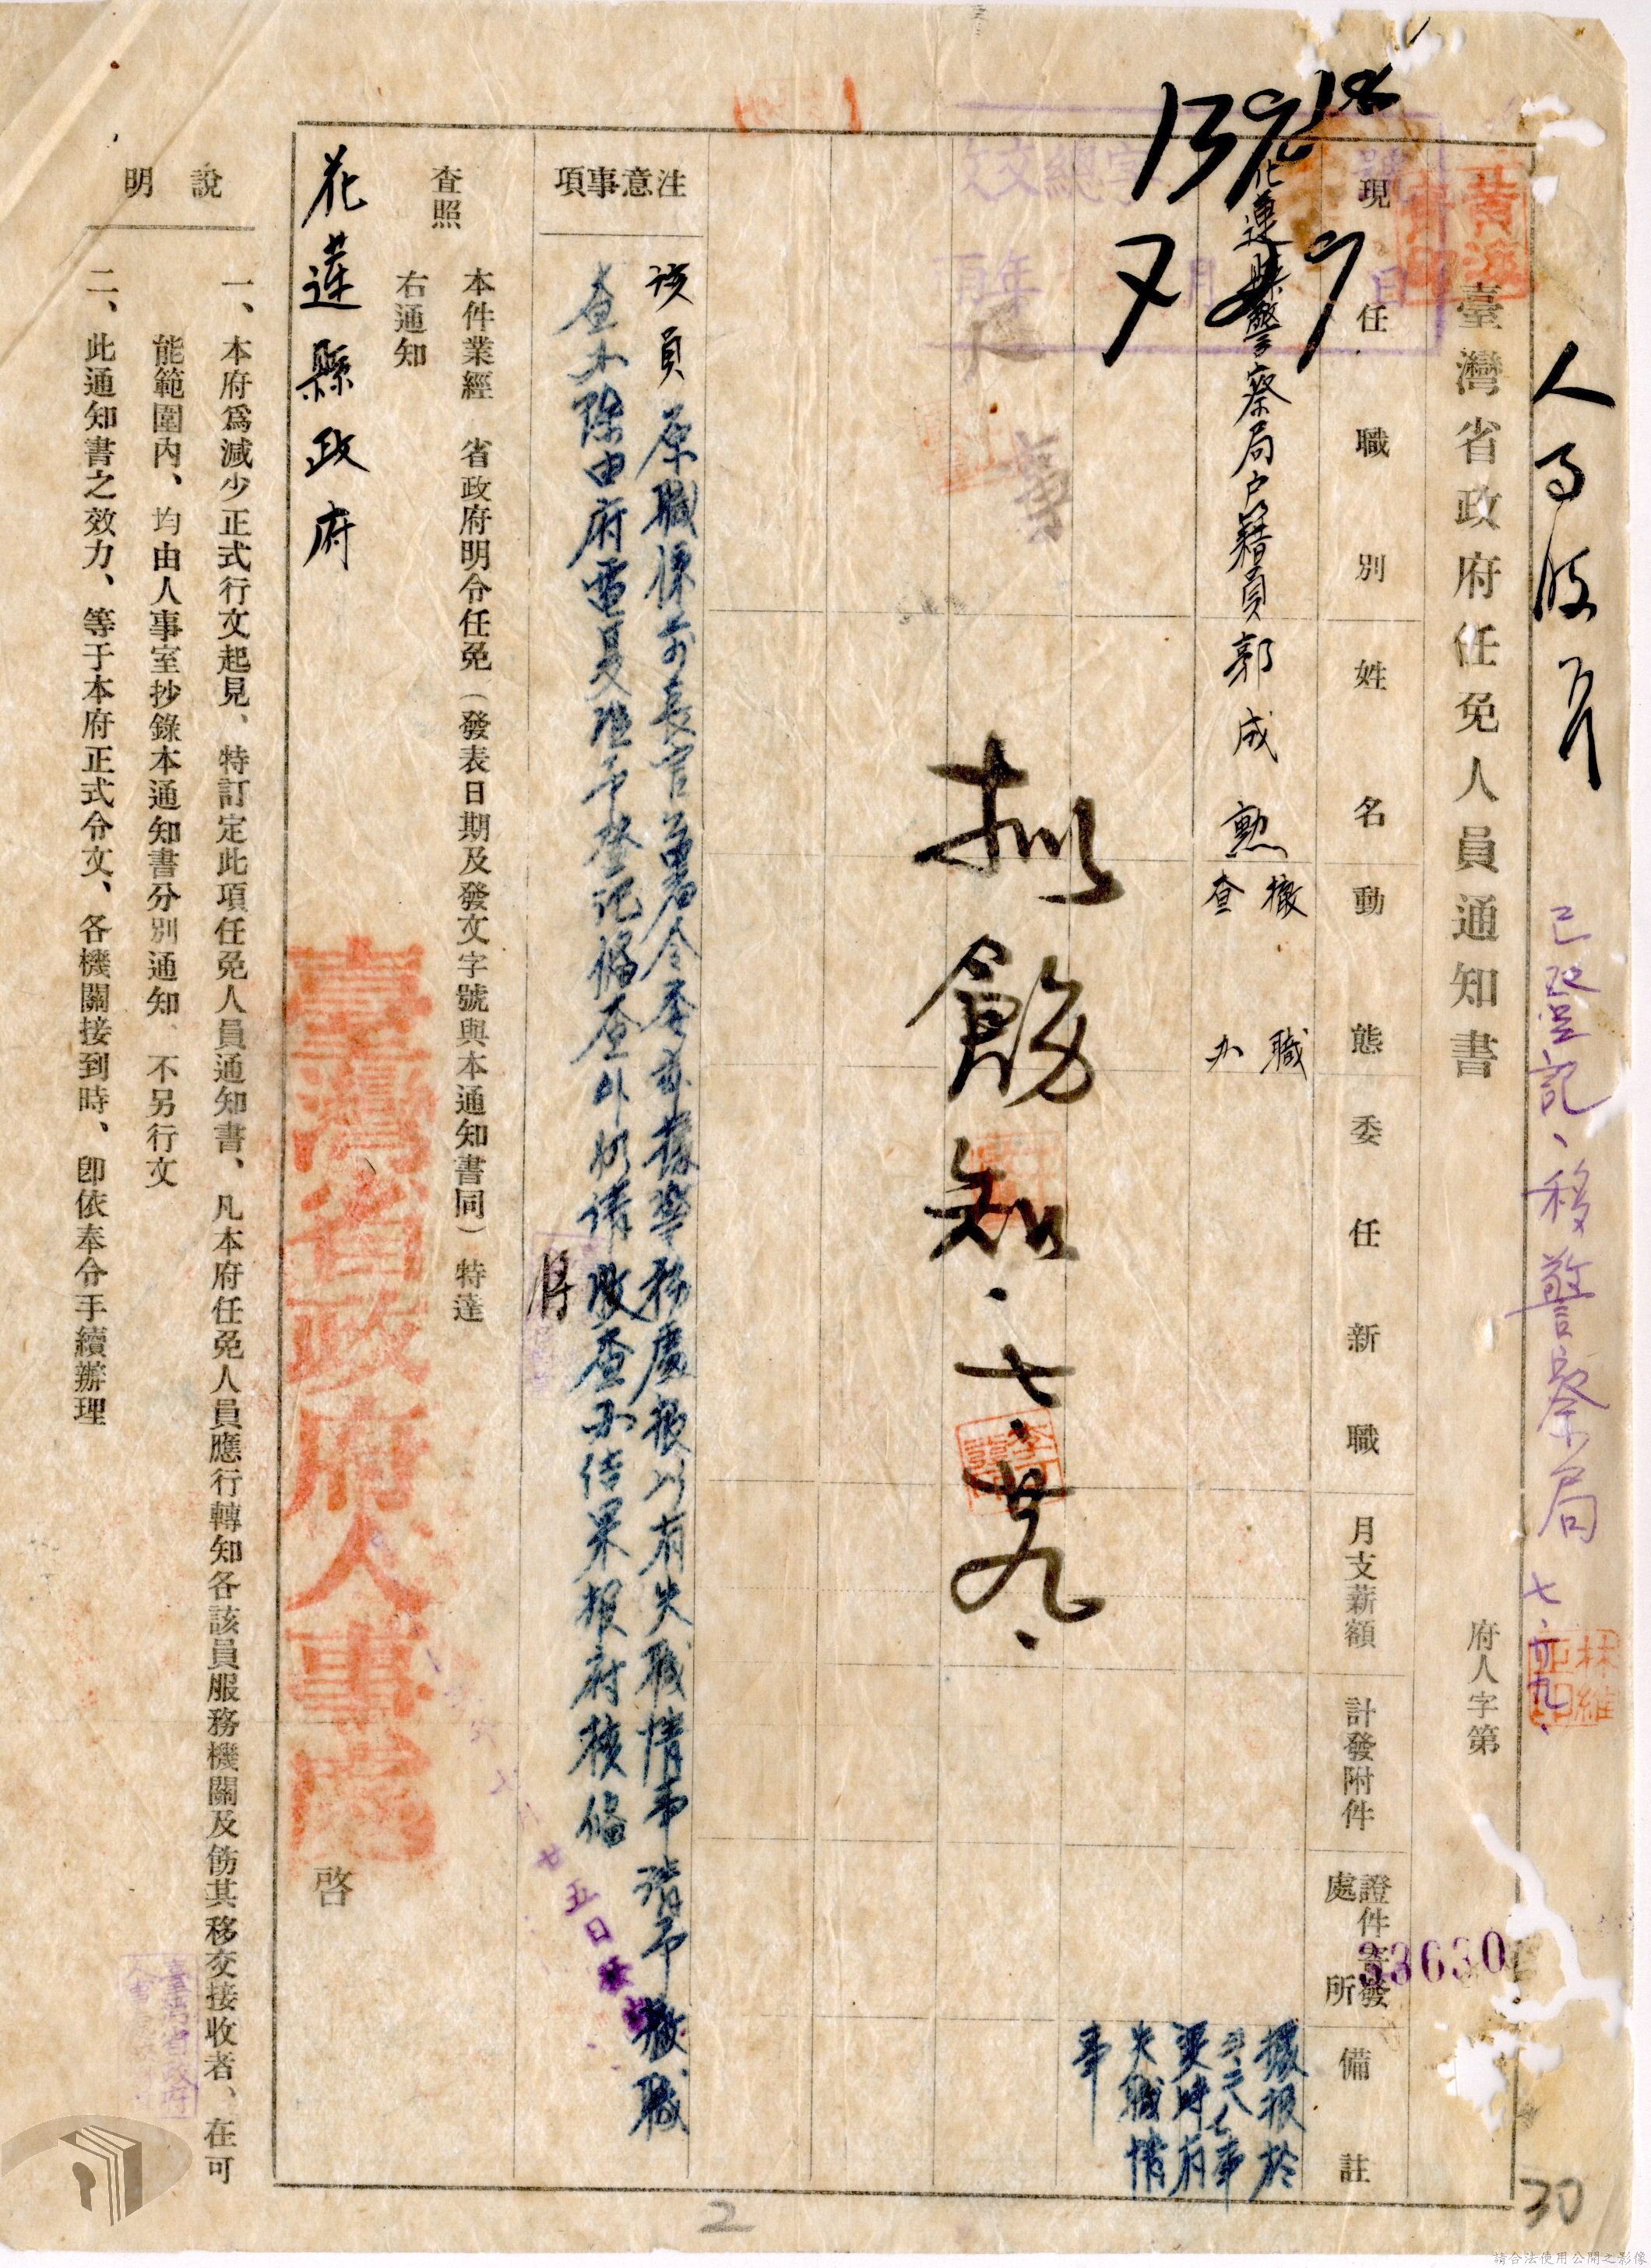 人事股 
已登記、移警察局 七、廿九、
臺灣省政府任免人員通知書
府人字第
33630
現任職別
姓名
動態
委任新職
月支薪額
計發附件
證件寄發處所
備註
花蓮縣警察局戶籍員
郭成勲
撤職查办
據報於
二二八事
變時有
失職情
事
拟飭知.七.廿九.
注意事項
該員原職係前長官公署令委茲據警務處報以有失職情事請予撤職
查办除由府電复准予登記備查外仍請將查办結果報府核備
本件業經 省政府明令任免(發表日期及發文字號與本通知書同)特達
查照
右通知
花蓮縣政府
臺灣省政府人事處
啓
說明
一、本府爲減少正式行文起見、特訂定此項任免人員通知書、凡本府任免人員應行轉知各該員服務機關及飭其移交接收者、在可
能範圍內、均由人事室抄錄本通知書分別通知、不另行文
二、此通知書之效力、等于本府正式令文、各機關接到時、卽依奉令手續辦理
廿五日
30
2
請合法使用公開之影像